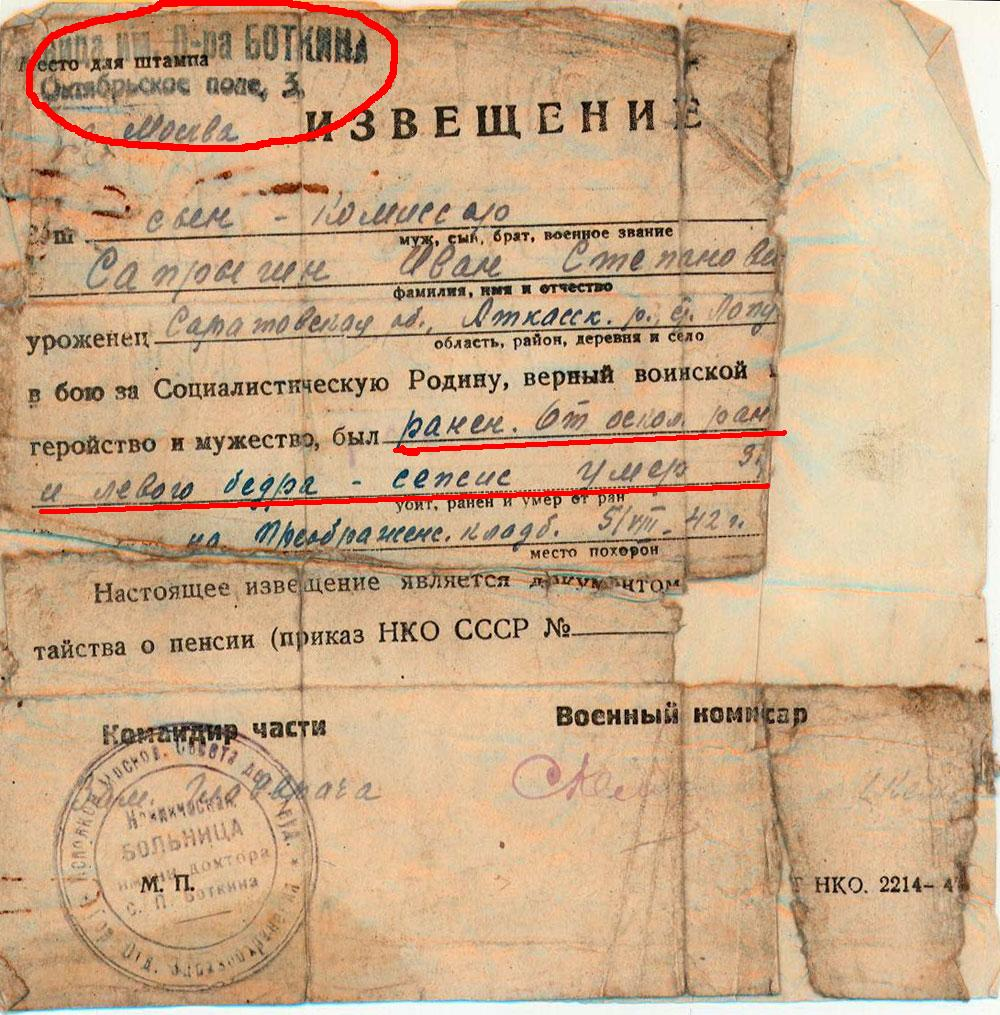 им. Д-ра БОТКИНА
Место для штампа
Октябрьское поле, 3,
Москва
ИЗВЕЩЕНИЕ
Ваш сын - комиссар
муж, сын, брат, военное звание
Сапрыгин Иван Степанови
фамилия, имя и отчество
уроженец Саратовская об., Аткасск. р. с. Лопу
область, район, деревня и село
в бою за Социалистическую Родину, верный воинской
геройство и мужество, был ранен. От оскол. ран
и левого бедра - сепсис умер
убит, ранен и умер от ран
на Преображенс. кладб. 5/VIII - 42 г.
место похорон
Настоящее извещение является документом
тайства о пенсии (приказ НКО СССР №
Командир части
Военный комисар
Зам. Главврача
Клиническая
БОЛЬНИЦА
имени доктора
С. П. Боткина
М. П.
НКО. 2214-4